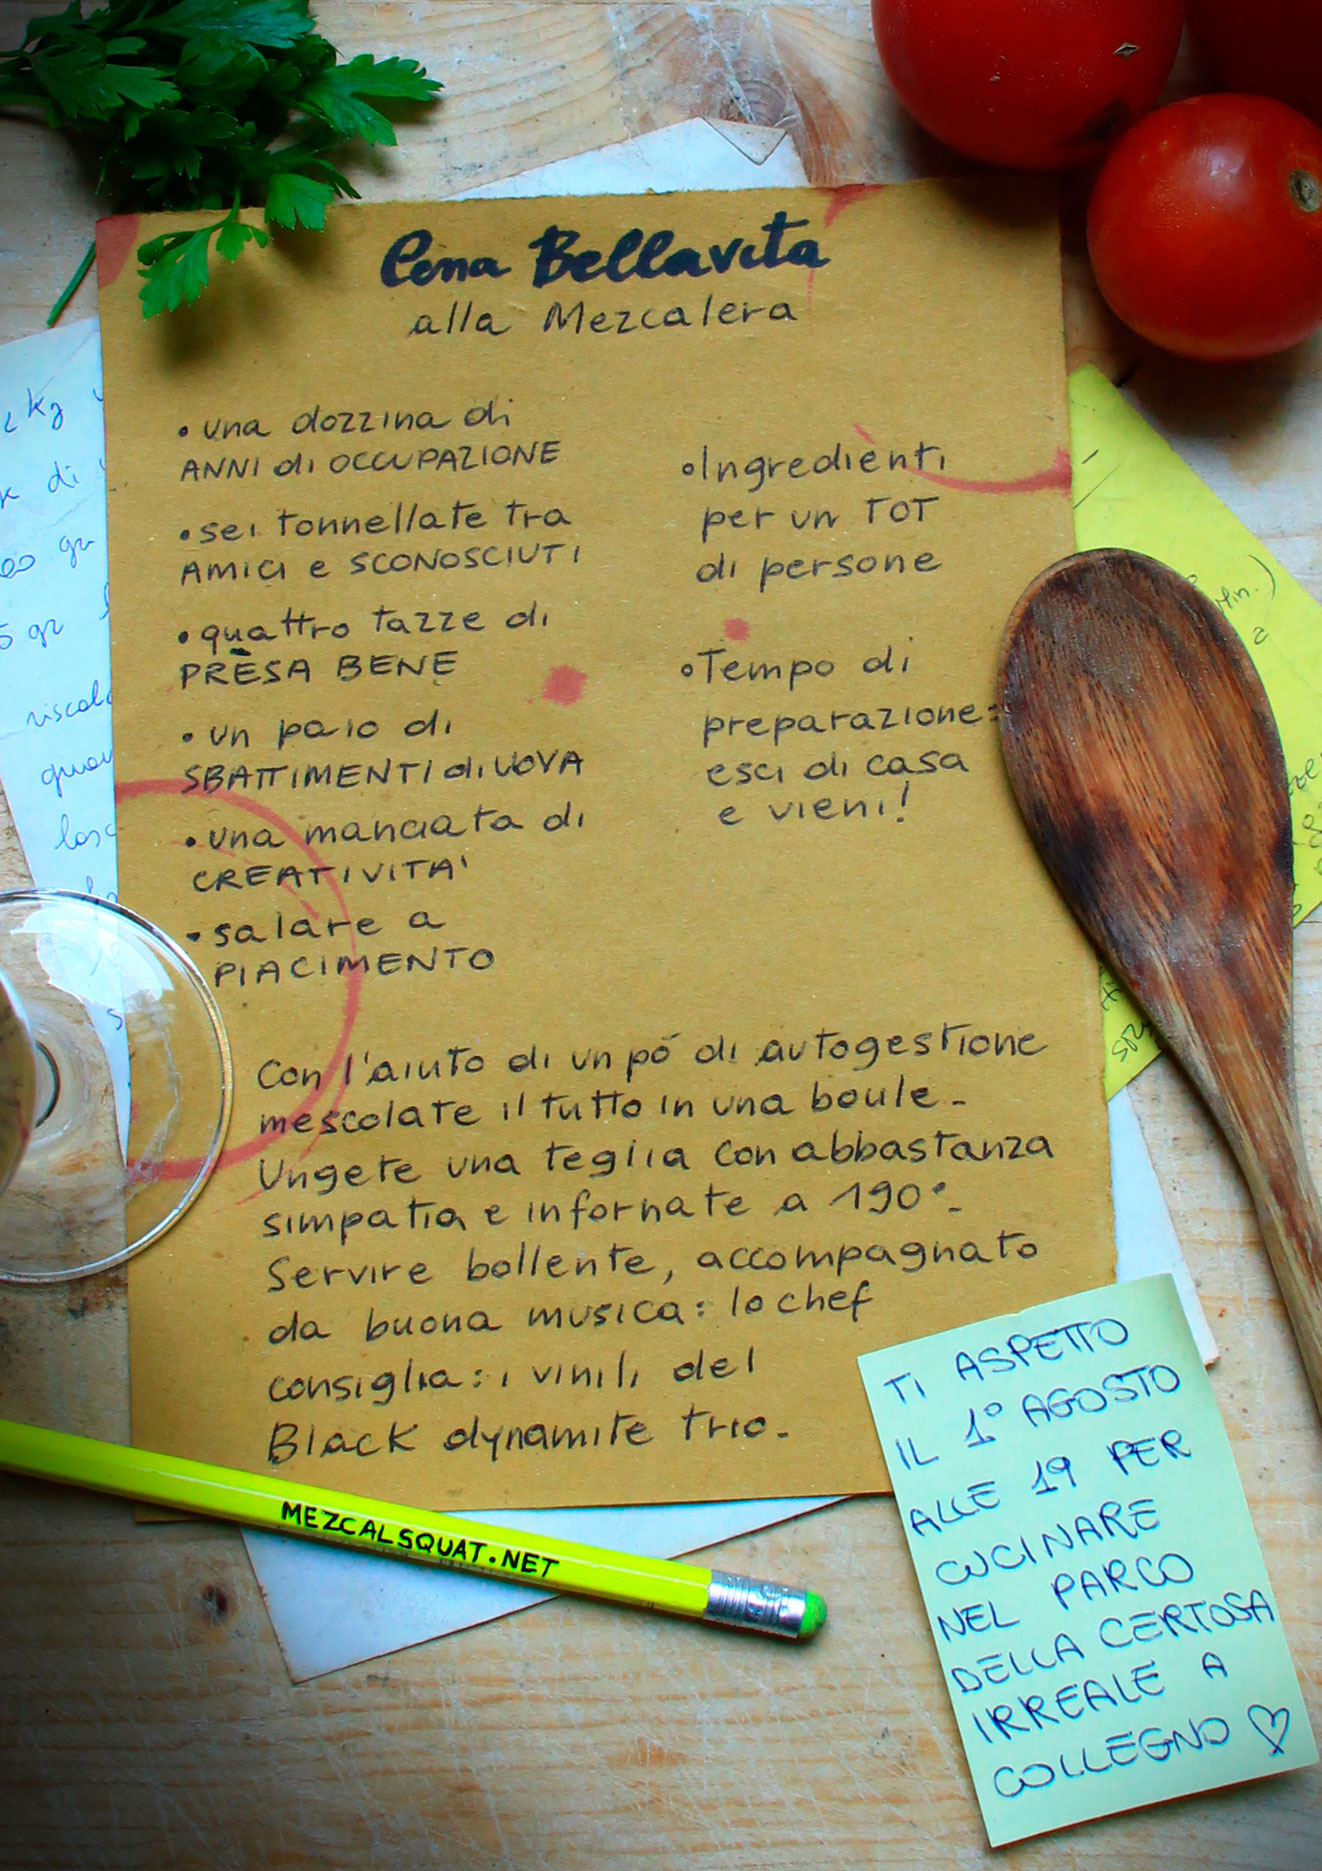 Cena Bellavita
alla Mezcalera
• una dozzina di
ANNI di OCCUPAZIONE
• sei tonnellate tra
AMICI e SCONOSCIUTI
• quattro tazze di
PRESA BENE
• un paio di
SBATTIMENTI di UOVA
• una manciata di
CREATIVITA'
• salare a
PIACIMENTO
• Ingredienti
per un TOT
di persone
• Tempo di
preparazione:
esci di casa
e vieni!
Con l'aiuto di un pó di autogestione
mescolate il tutto in una boule.
Ungete una teglia con abbastanza
simpatia e infornate a 190°.
Servire bollente, accompagnato
da buona musica: lo chef
consiglia: i vinili del
Black dynamite trio.
MEZCALSQUAT.NET
TI ASPETTO
IL 1° AGOSTO
ALLE 19 PER
CUCINARE
NEL PARCO
DELLA CERTOSA
IRREALE A
COLLEGNO ♡
kg
di
gr
5 gr